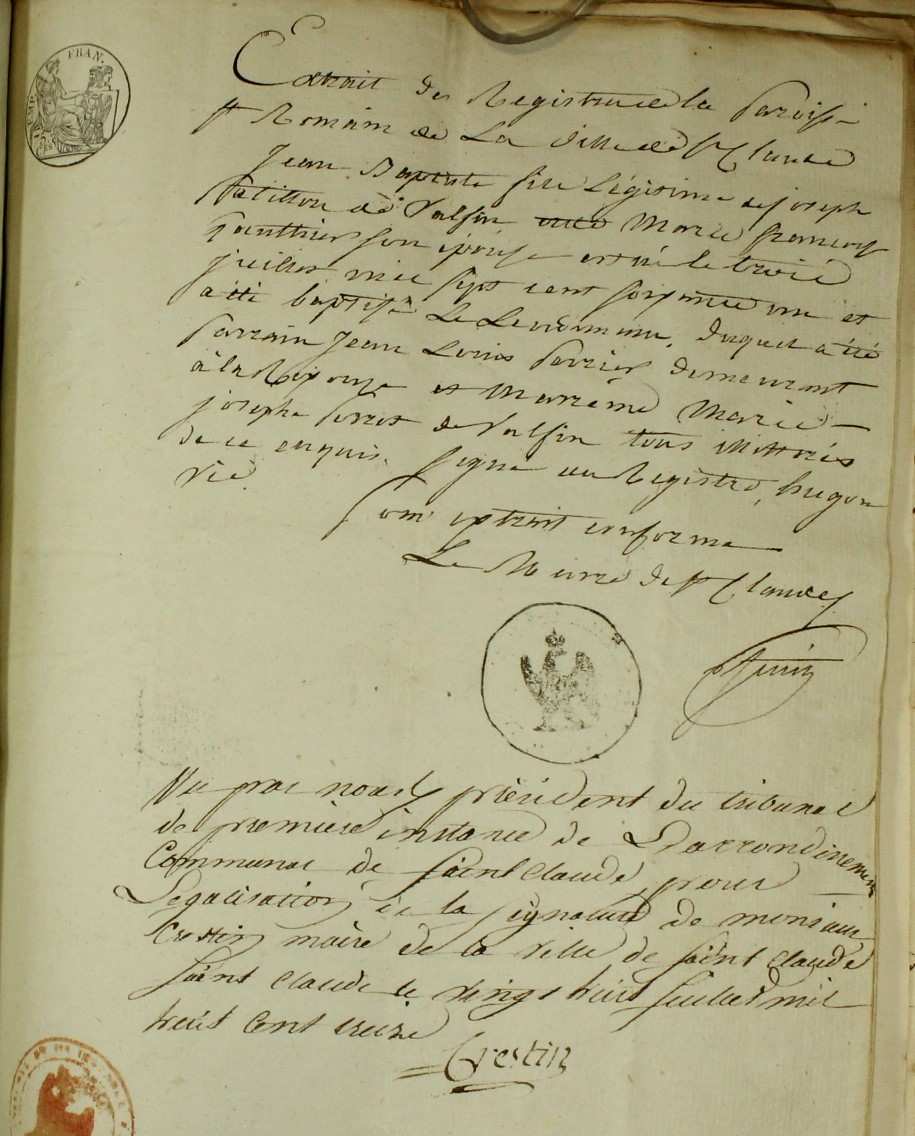 FRAN.
Extrait des Registres de la Paroisse
st Romain de La Ville de st Claude
Jean Baptiste fils Légitime de joseph
de Valfin Marie françoise
Gauthier son épouse est né le trois
juillet mil sept cent soixante un et
a été baptisé Le Lendemain, duquel a été
Parrain Jean Louis Perrier demeurant
à la Rixouse et Marraine Marie
josephe Perrot de Valfin tous illittérés
de ce enquis. signé au Registre, hugon
vic.
pour extrait conforme
Le Maire de st Claude
Vu par nous président du tribunal
de première instance de L'arrondissement
Communal de saint Claude pour
Légalisation de la signature de monsieur
Crestin maire de la ville de saint Claude
saint Claude le vingt huit juillet mil
huit cent treize
Crestin